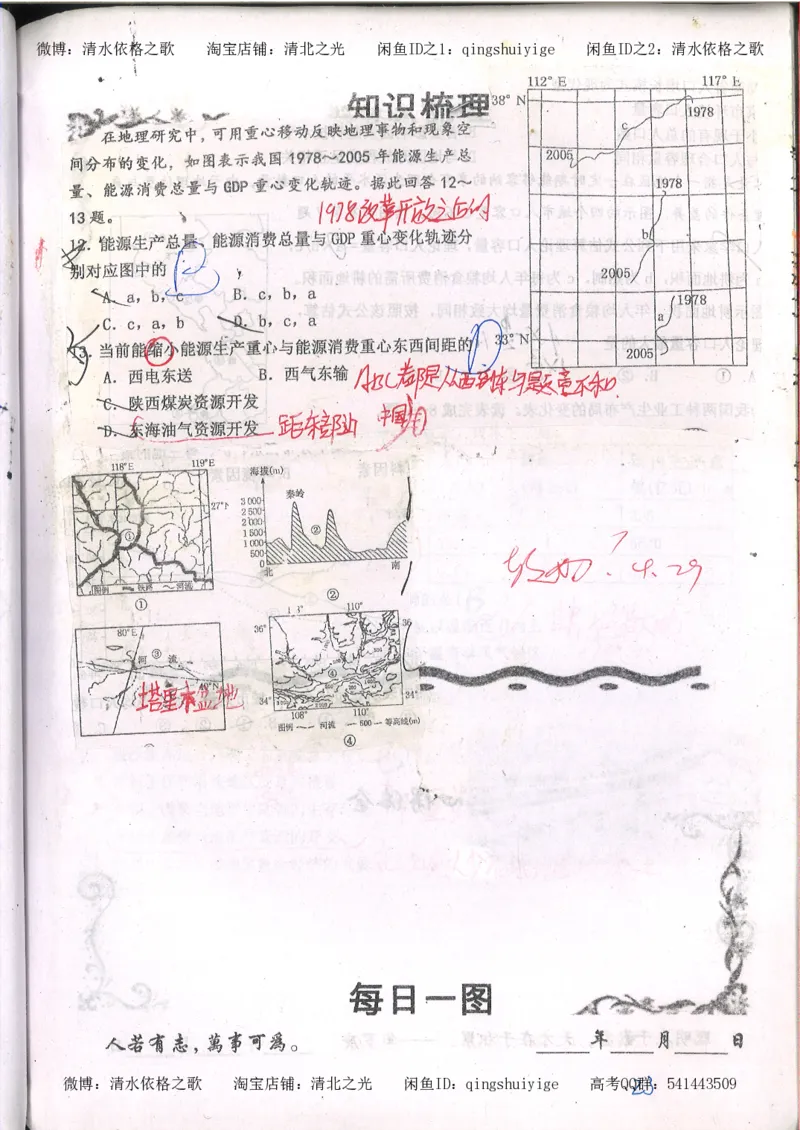 微博：清水依格之歌 淘宝店铺：清北之光 闲鱼ID之1：qingshuiyige 闲鱼ID之2：清水依格之歌
知识梳理
在地理研究中，可用重心移动反映地理事物和现象空
间分布的变化，如图表示我国1978~2005年能源生产总
量、能源消费总量与GDP重心变化轨迹。据此回答12～
13题。
1978改革开放之后的
12. 能源生产总量、能源消费总量与GDP重心变化轨迹分
别对应图中的
A. a，b，c B. c，b，a
C. c，a，b D. b，c，a
13. 当前能缩小能源生产重心与能源消费重心东西间距的
A. 西电东送 B. 西气东输
C. 陕西煤炭资源开发
D. 东海油气资源开发
112° E 117° E
38° N
1978
c
2005
1978
b
2005
1978
a
33° N
2005
118°E 119°E
27°
①
图例 铁路 河流
①
海拔(m)
秦岭
3 000
2 500
2 000
1 500
1 000
500
0
②
北 南
②
80°E
河 流
③
40°N
塔里木盆地
110°
36° 36
④
34° 34°
108° 110°
图例 河流 600 等高线(m)
④
4.29
每日一图
人若有志，萬事可爲。
年 月 日
微博：清水依格之歌 淘宝店铺：清北之光 闲鱼ID：qingshuiyige 高考QQ群：541443509